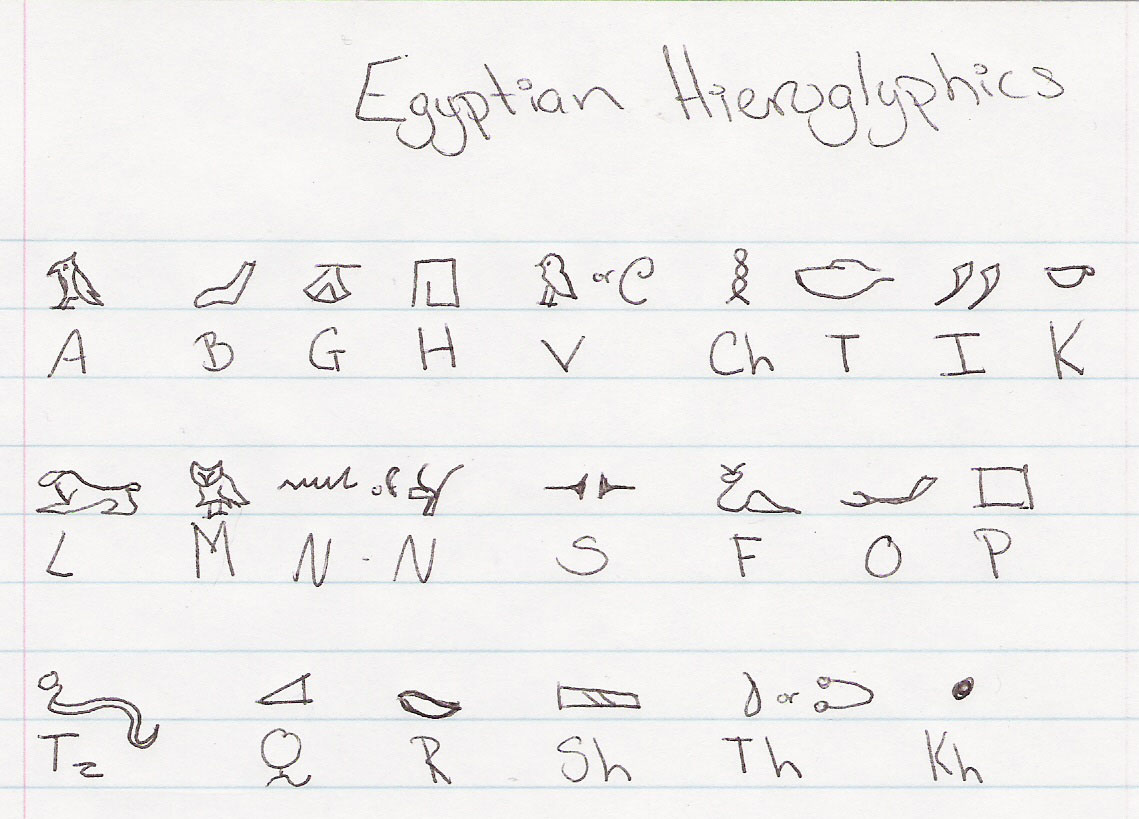 Egyptian Hieroglyphics
or
A B G H V Ch T I K
or
L M N - N S F O P
or
Tz Q R Sh Th Kh